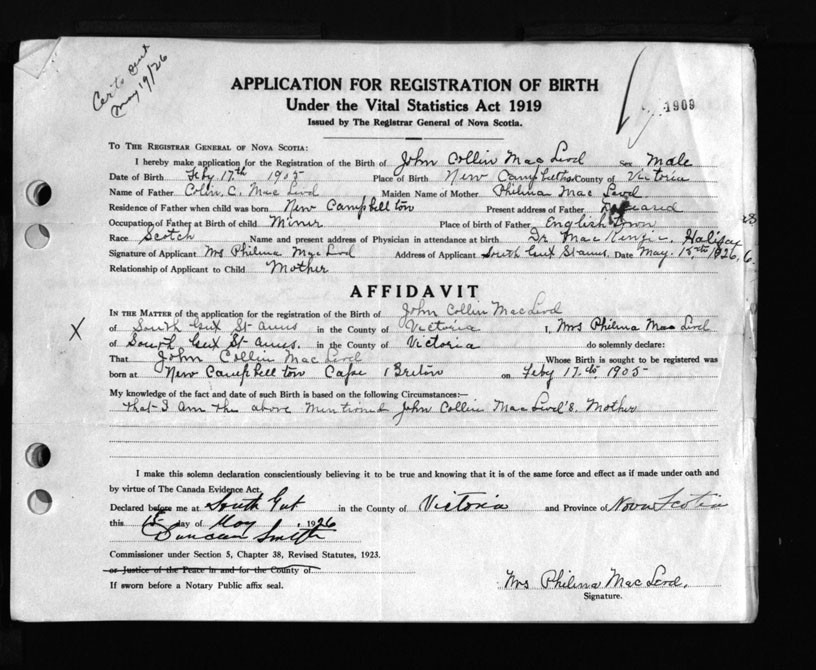 Cert Sent
May 19/26
1909
APPLICATION FOR REGISTRATION OF BIRTH
Under the Vital Statistics Act 1919
Issued by The Registrar General of Nova Scotia.
TO THE REGISTRAR GENERAL OF NOVA SCOTIA:
I hereby make application for the Registration of the Birth of John Collin Mac Leod Sex Male
Date of Birth Feby 17th 1905 Place of Birth New Campbellton County of Victoria
Name of Father Colin C. Mac Leod Maiden Name of Mother Philena Mac Leod
Residence of Father when child was born New Campbellton Present address of Father Deceased
Occupation of Father at Birth of child Miner Place of birth of Father English Town
Race Scotch Name and present address of Physician in attendance at birth Dr MacKenzie Halifax
Signature of Applicant Mrs Philena MacLeod Address of Applicant South Gut St anns. Date May. 15th 1926,
Relationship of Applicant to Child Mother
AFFIDAVIT
IN THE MATTER of the application for the registration of the Birth of John Collin MacLeod
of South Gut St Anns in the County of Victoria I, Mrs Philena MacLeod
X of South Gut St Anns. in the County of Victoria do solemnly declare:
That John Collin MacLeod Whose Birth is sought to be registered was
born at New Campbellton Cape Breton on Feby 17th 1905
My knowledge of the fact and date of such Birth is based on the following Circumstances:—
that I am the above mentioned John Collin MacLeod's Mother
I make this solemn declaration conscientiously believing it to be true and knowing that it is of the same force and effect as if made under oath and
by virtue of The Canada Evidence Act.
Declared before me at South Gut in the County of Victoria and Province of Nova Scotia
this 15 day of May, 1926
Duncan Smith
Commissioner under Section 5, Chapter 38, Revised Statutes, 1923.
or Justice of the Peace in and for the County of
If sworn before a Notary Public affix seal.
Mrs Philena MacLeod.
Signature.